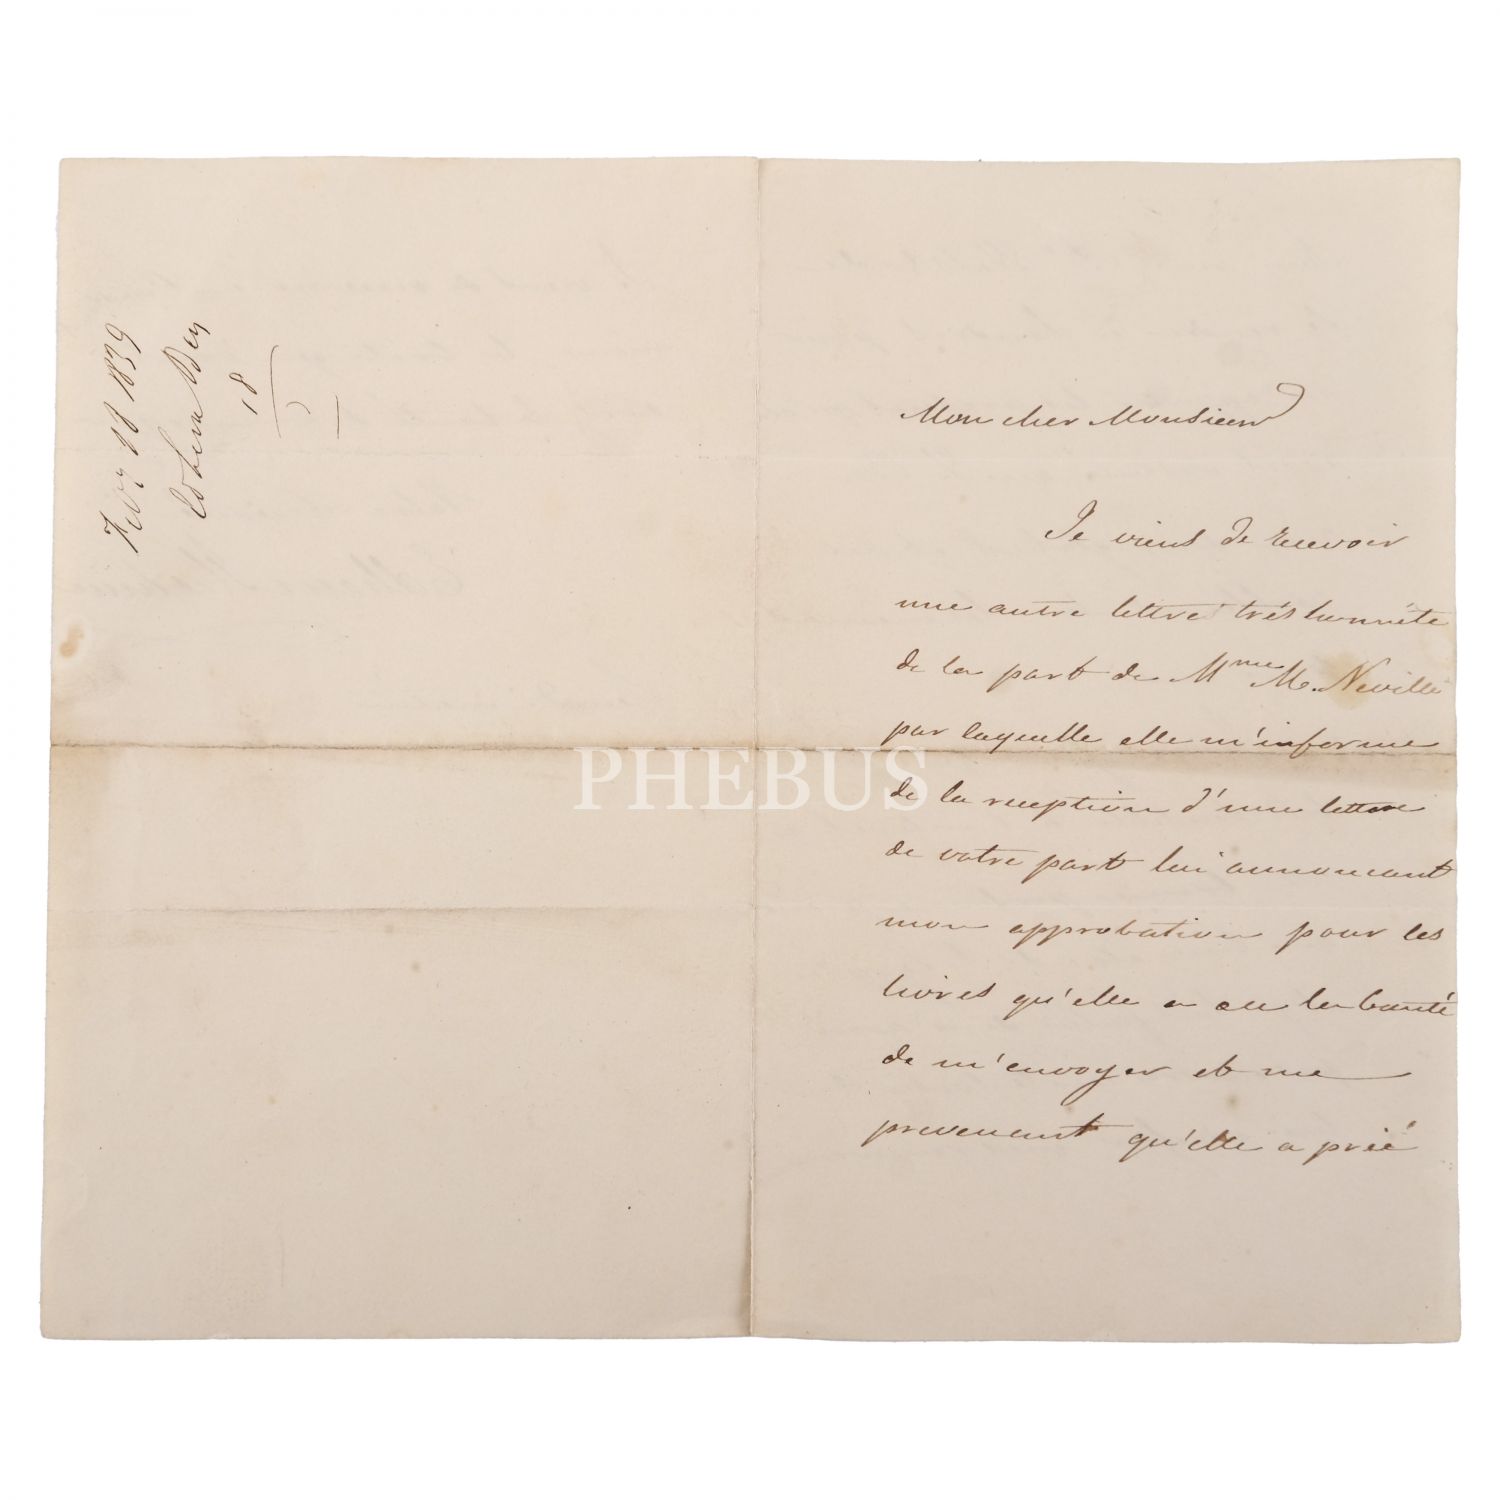 Fevr 18 1839
Bey
18
Mon cher Monsieur
Je viens de recevoir
une autre lettre trés honnéte
de la part de Mme M. Neville
par laquelle elle m'informe
de la reception d'une lettre
de votre part lui annoncant
mon approbation pour les
livres qu'elle a eu la bonté
de m'envoyer et me
prevenant qu'elle a prié
PHEBUS